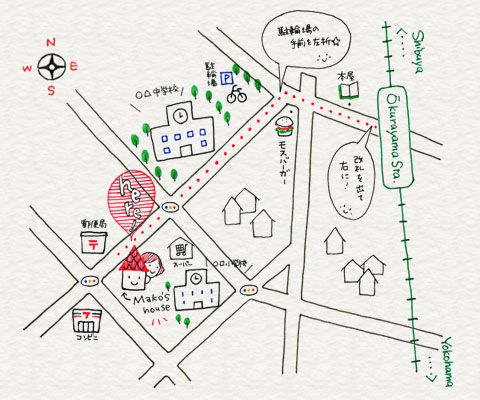 N
W
E
S
駐輪場
P
駐輪場の
手前を左折☆
Shibuya
本屋
Ōkurayama Sta.
改札を出て
右に!
○△中学校
モスバーガー
here!
郵便局
〒
スーパー
□小学校
Mako's
house
コンビニ
Yokohama